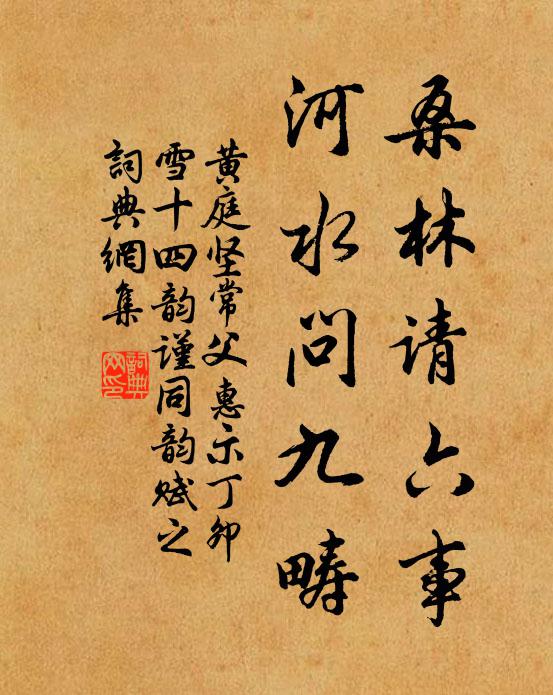 桑林请六事
河水问九畴
黄庭坚常父惠示丁卯
雪十四韵谨同韵赋之
詞典網集
詞典
网印